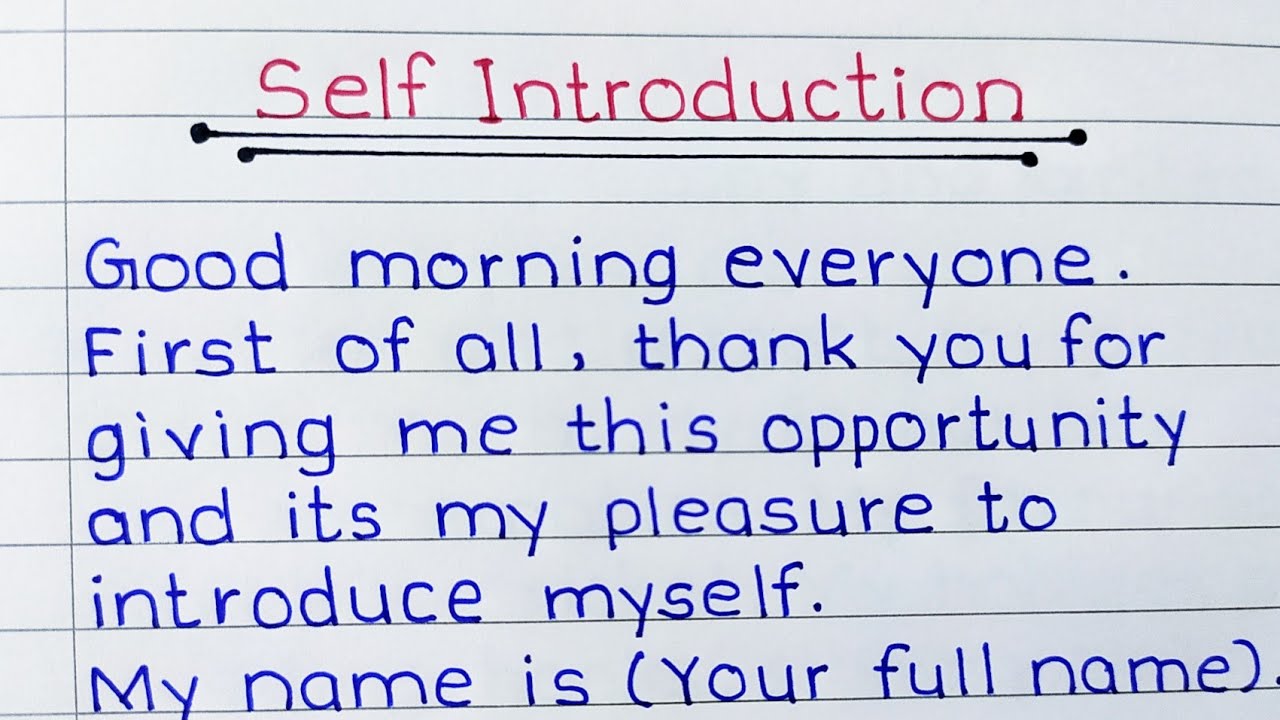 Self Introduction
Good morning everyone.
First of all, thank you for
giving me this opportunity
and its my pleasure to
introduce myself.
My name is (Your full name).